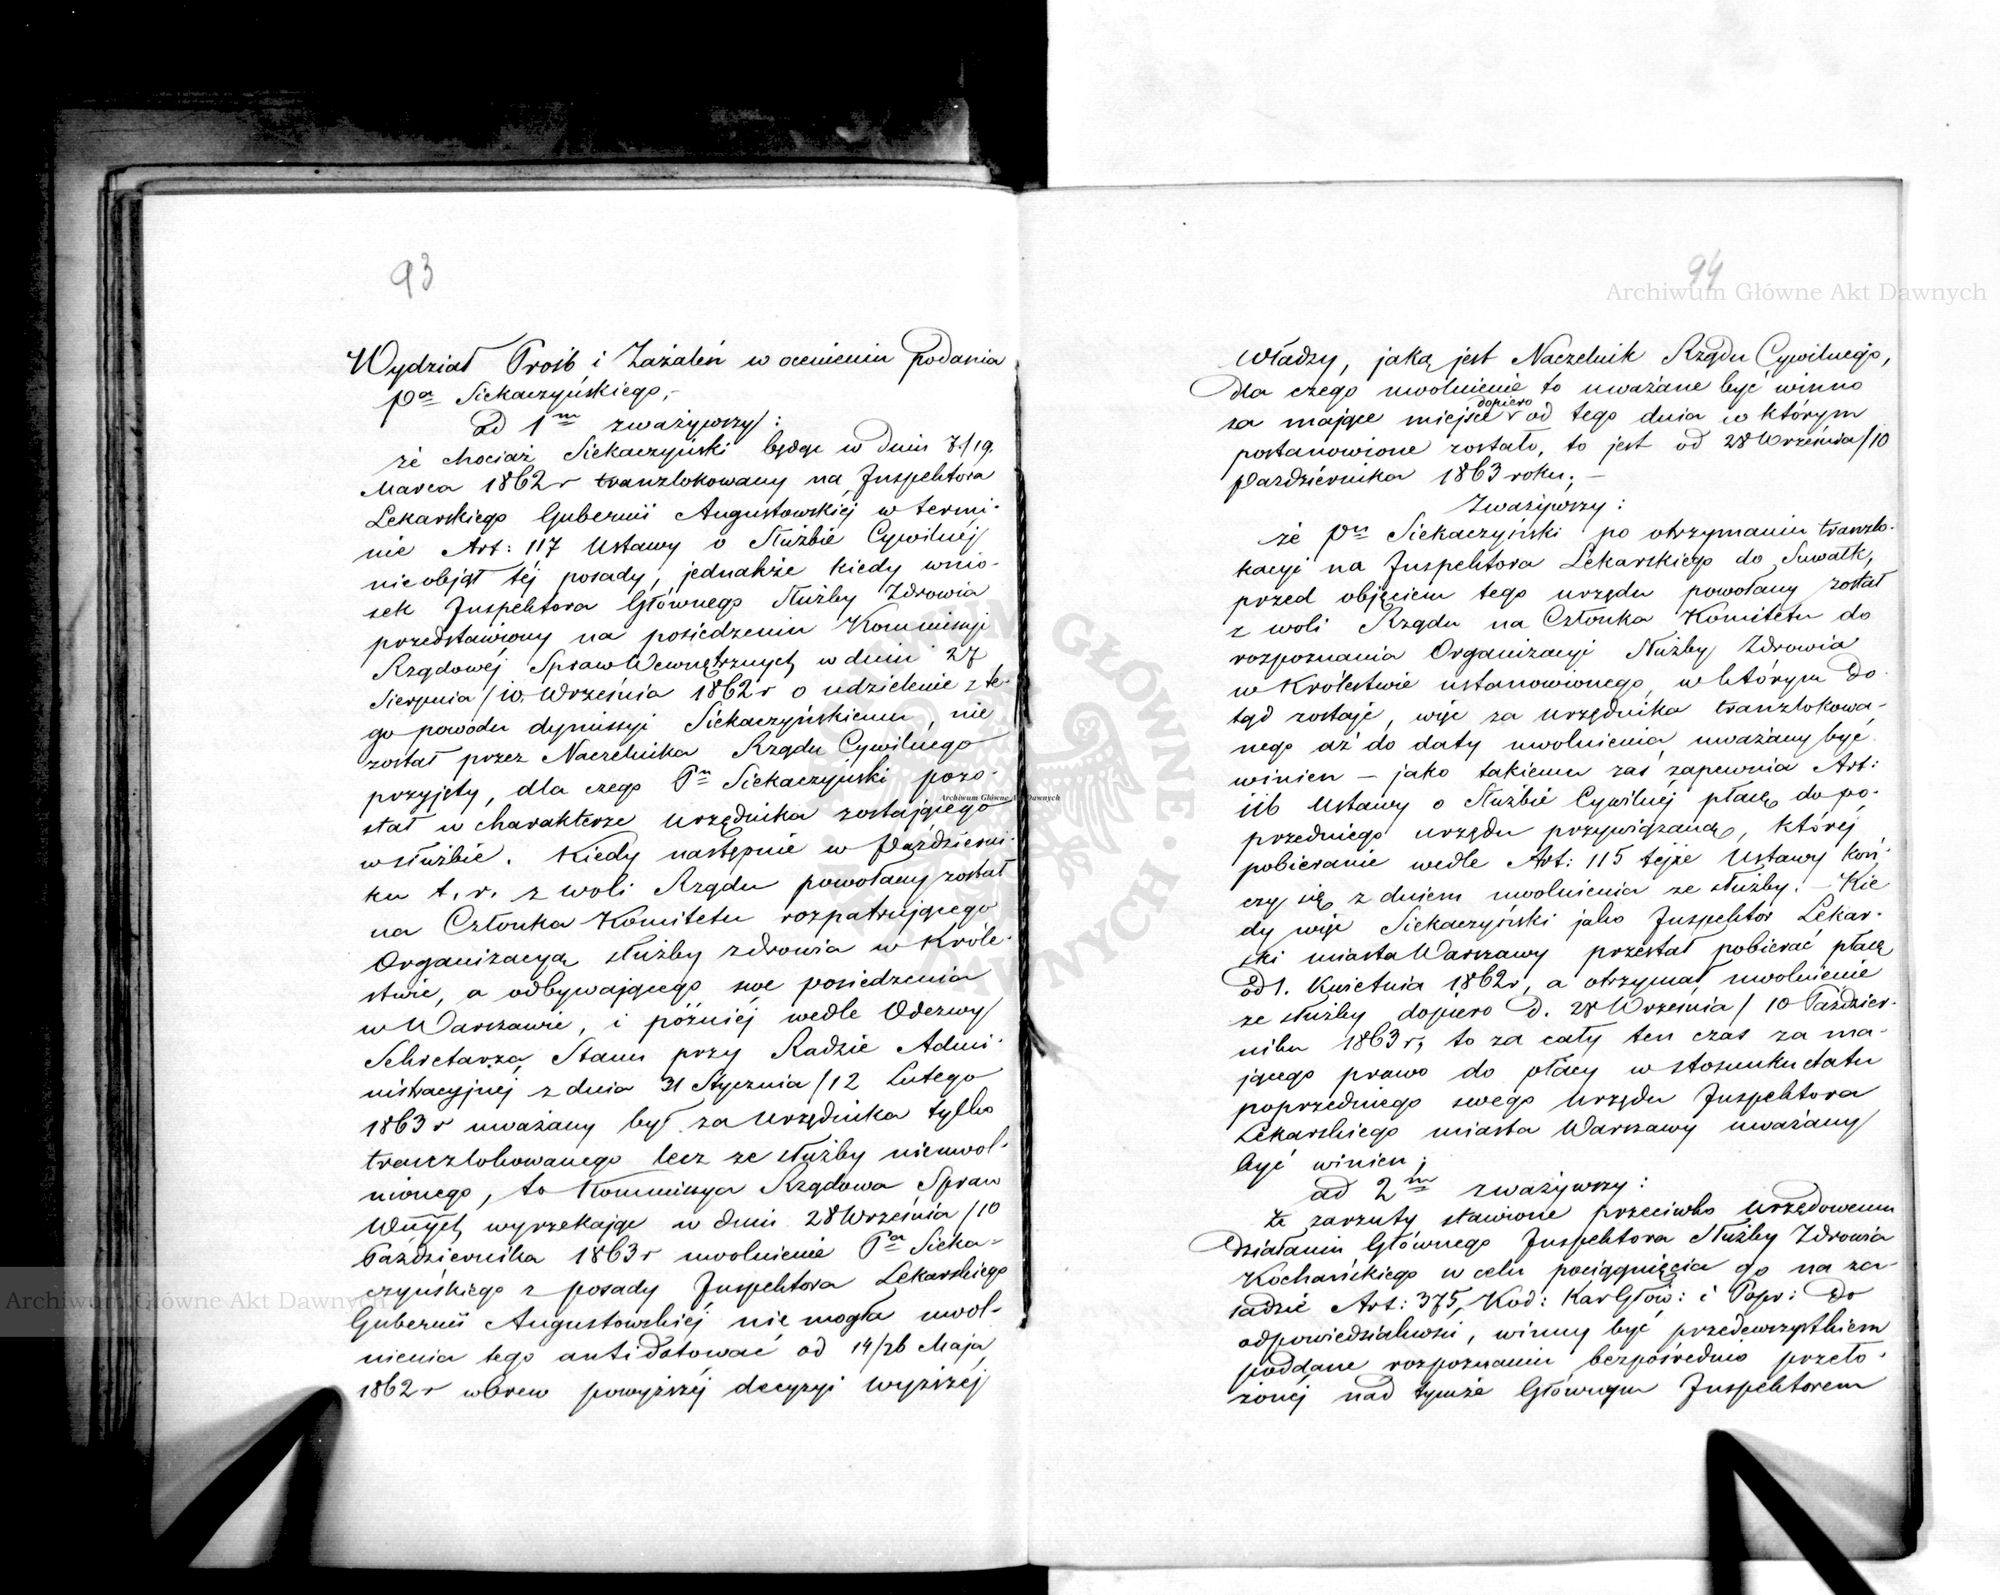 93
Wydział Prośb i Zażaleń w ocenieniu podania
Pa Siekaczyńskiego,-
ad 1m zważywszy:
że chociaż Siekaczyński będąc w dniu 7/19.
Marca 1862 r tranzlokowany na Inspektora
Lekarskiego Gubernii Augustowskiéj w termi-
nie Art: 117 Ustawy o Służbie Cywilnéj
nieobjął téj posady, jednakże kiedy wnio-
sek Inspektora Głównego Służby Zdrowia
przedstawiony na posiedzeniu Kommissyi
Rządowéj Spraw Wewnętrznych w dniu 27
Sierpnia/10. Września 1862 r o udzielenie z te-
go powodu dymissyi Siekaczyńskiemu, nie
został przez Naczelnika Rządu Cywilnego
przyjęty, dla czego Pn Siekaczyński pozo-
stał w charakterze urzędnika zostającego
w służbie. Kiedy następnie w Październi-
ku t. r. z woli Rządu powołany został
na Członka Komitetu rozpatrującego
Organizacyą służby zdrowia w Króle-
stwie, a odbywającego swe posiedzenia
w Warszawie, i późniéj wedle Odezwy
Sekretarza Stanu przy Radzie Admi-
nistracyjnéj z dnia 31 Stycznia/12 Lutego
1863 r uważany był za urzędnika tylko
tranzlokowanego lecz ze służby nieuwol-
nionego, to Kommissya Rządowa Spraw
Wnych wyrzekając w dniu 28 Września/10
Października 1863 r uwolnienie Pa Sieka-
czyńskiego z posady Inspektora Lekarskiego
Gubernii Augustowskiéj nie mogła uwol-
nienia tego antidotować od 14/26 Maja
1862 r wbrew powyższéj decyzyi wyższéj
94
Władzy, jaką jest Naczelnik Rządu Cywilnego,
dla czego uwolnienie to uważane być winno
za mające miejsce dopiero od tego dnia w którym
postanowione zostało, to jest od 28 Września/10
Października 1863 roku; -
Zważywszy:
że Pn Siekaczyński po otrzymaniu tranzlo-
kacyi na Inspektora Lekarskiego do Suwałk,
przed objęciem tego urzędu powołany został
z woli Rządu na Członka Komitetu do
rozpoznania Organizacyi Służby Zdrowia
w Królestwie ustanowionego, w którym do-
tąd zostaje, więc za urzędnika tranzlokowa-
nego aż do daty uwolnienia uważany być
winien - jako takiemu zaś zapewnia Art:
116 Ustawy o Służbie Cywilnéj płacę do po-
przedniego urzędu przywiązaną, któréj
pobieranie wedle Art: 115 téjże Ustawy koń-
czy się z dniem uwolnienia ze służby. - Kie
dy więc Siekaczyński jako Inspektor Lekar-
ski miasta Warszawy przestał pobierać płacę
od 1. Kwietnia 1862 r, a otrzymał uwolnienie
ze służby dopiero d. 28 Września/10 Paździer-
nika 1863 r, to za cały ten czas za ma-
jącego prawo do płacy w stosunku etatu
poprzedniego swego urzędu Inspektora
Lekarskiego miasta Warszawy uważany
być winien;
ad 2m zważywszy:
że zarzuty stawione przeciwko urzędowemu
działaniu Głównego Inspektora Służby Zdrowia
Kochańskiego w celu pociągnięcia go na za-
sadzie Art: 375, Kod: Kar Głów: i Popr: do
odpowiedzialności, winny być przedewszystkiem
poddane rozpoznaniu bezpośrednio przeło-
żonéj nad tymże Głównym Inspektorem
Archiwum Główne Akt Dawnych
Archiwum Główne Akt Dawnych
Archiwum Główne Akt Dawnych